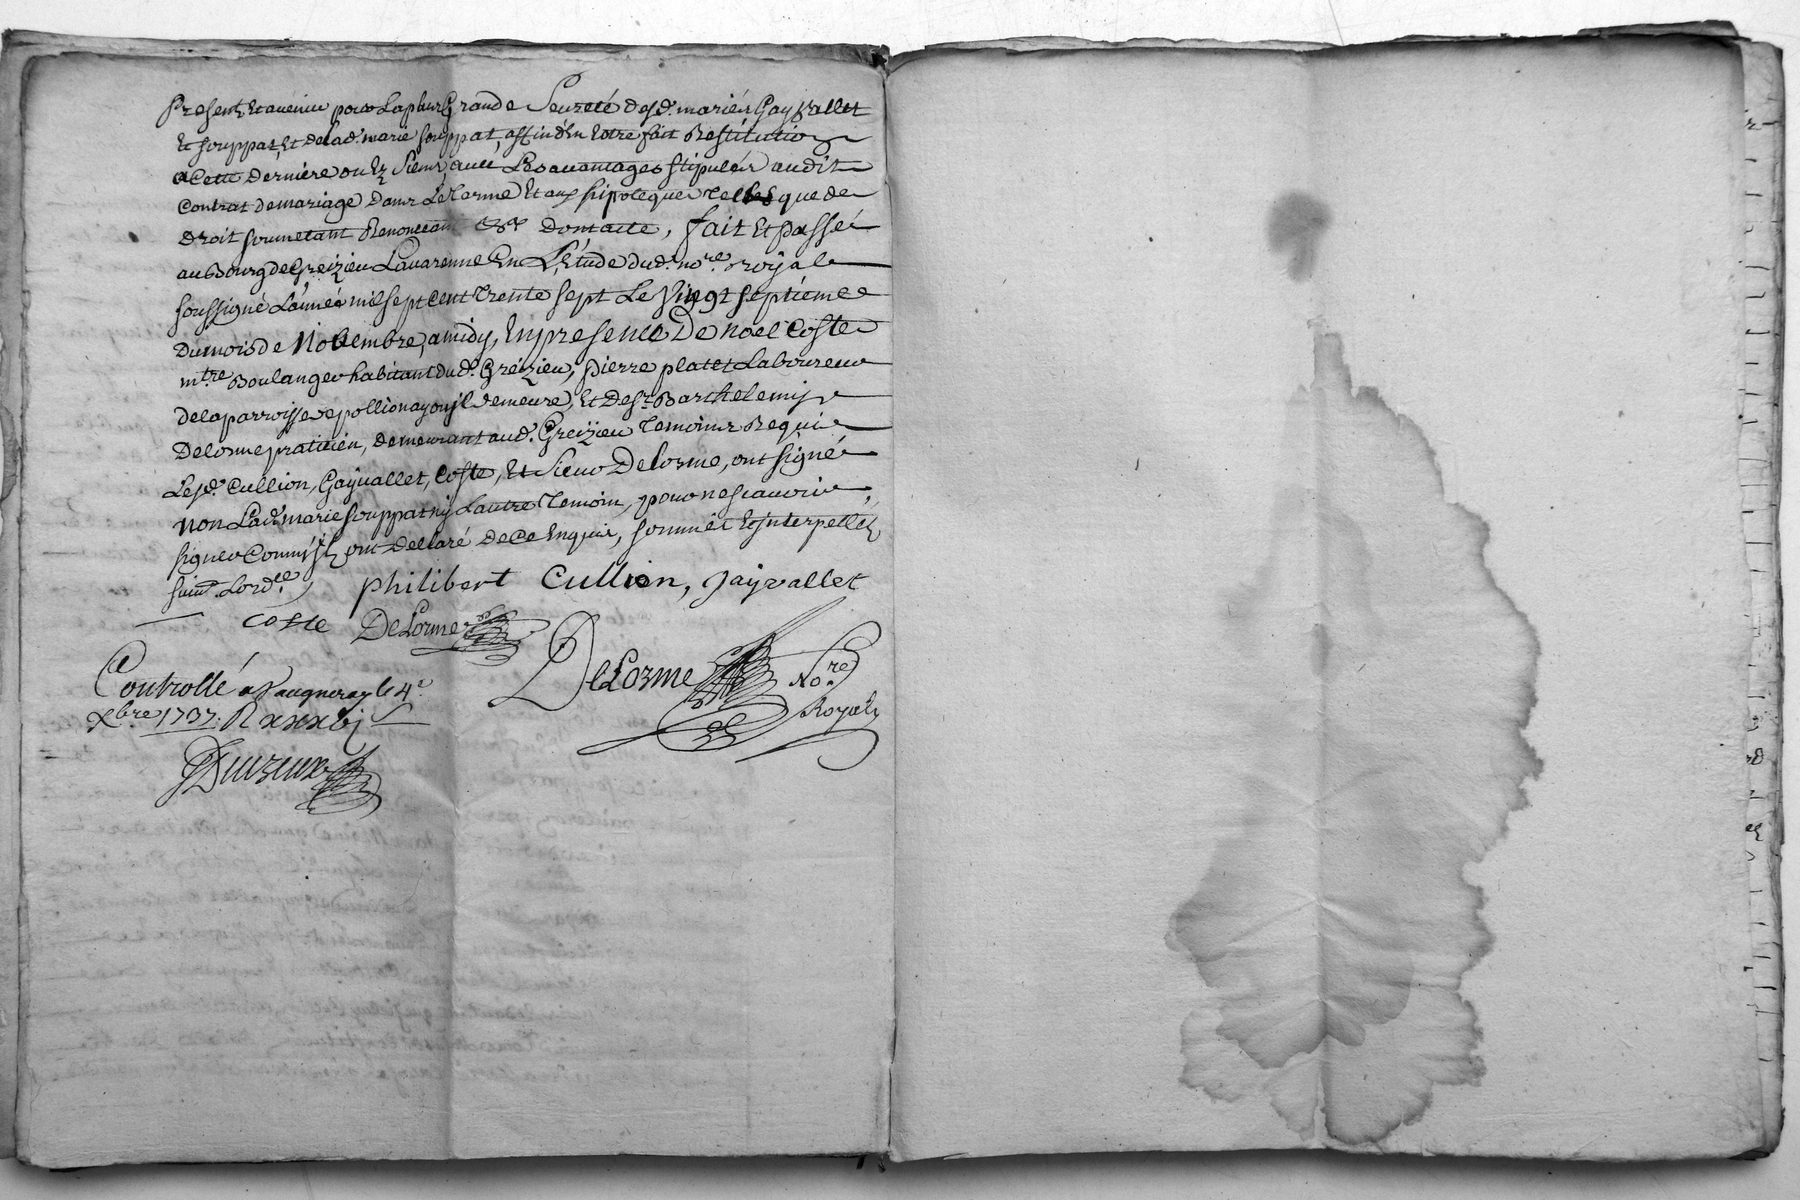 Present Et avenir pour La plus Grande Seureté desd. mariés Gayvallet
Et souppat, Et de lad. marie souppat, affin d'En Estre fait Restitution
a Cette Derniere ou Ez Siens, avec Les avantages stipulés audit
Contrat de mariage Dans Le Terme Et aux hipoteques Telles que de
Droit soumettant Renonceant &&a dont acte, fait Et Passé
au Bourg de Greizieu Lavarenne En L'Etude dud. no.re Royal
soussigné L'année mil sept Cent Trente sept Le Vingt septieme
Du mois de Novembre, a midy, En presence De noel Coste
m.tre Boulanger habitant dud. Greizieu, pierre platet Laboureur
de la parroisse de pollionay ou il demeure, Et De Sr Barthelemy
Delorme praticien, demeurant aud. Greizieu Temoins Requis
Lesd. Cullion, Gayvallet, Coste, Et Sieur Delorme, ont signé
non Lad. marie souppat ny Lautre Temoin, pour ne scavoir
signer Comm'Ils ont Declaré De Ce Enquis, sommés Et Interpellés
suiv.t Lord.ce
philibert Cullion, gayvallet
coste DeLorme
DeLorme No.re
Royal
Controllé a Vaugneray le 4e
xbre 1737. R xxxvj s